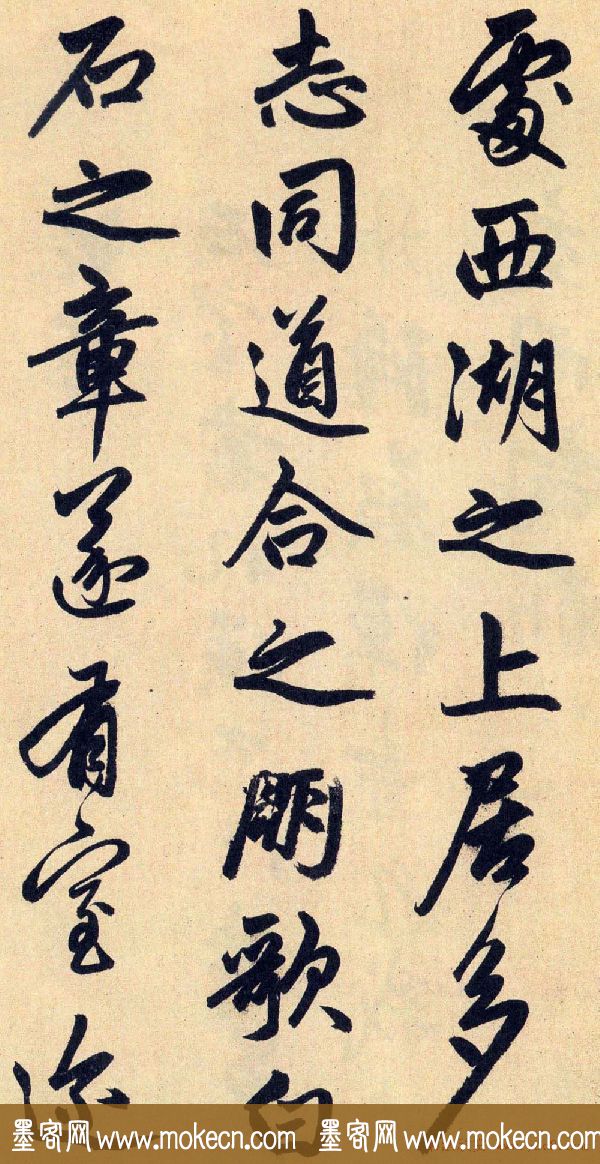 處西湖之上居多
志同道合之朋歌白
石之章遂有室
墨客网 www.mokecn.com 墨客网 www.mokecn.com